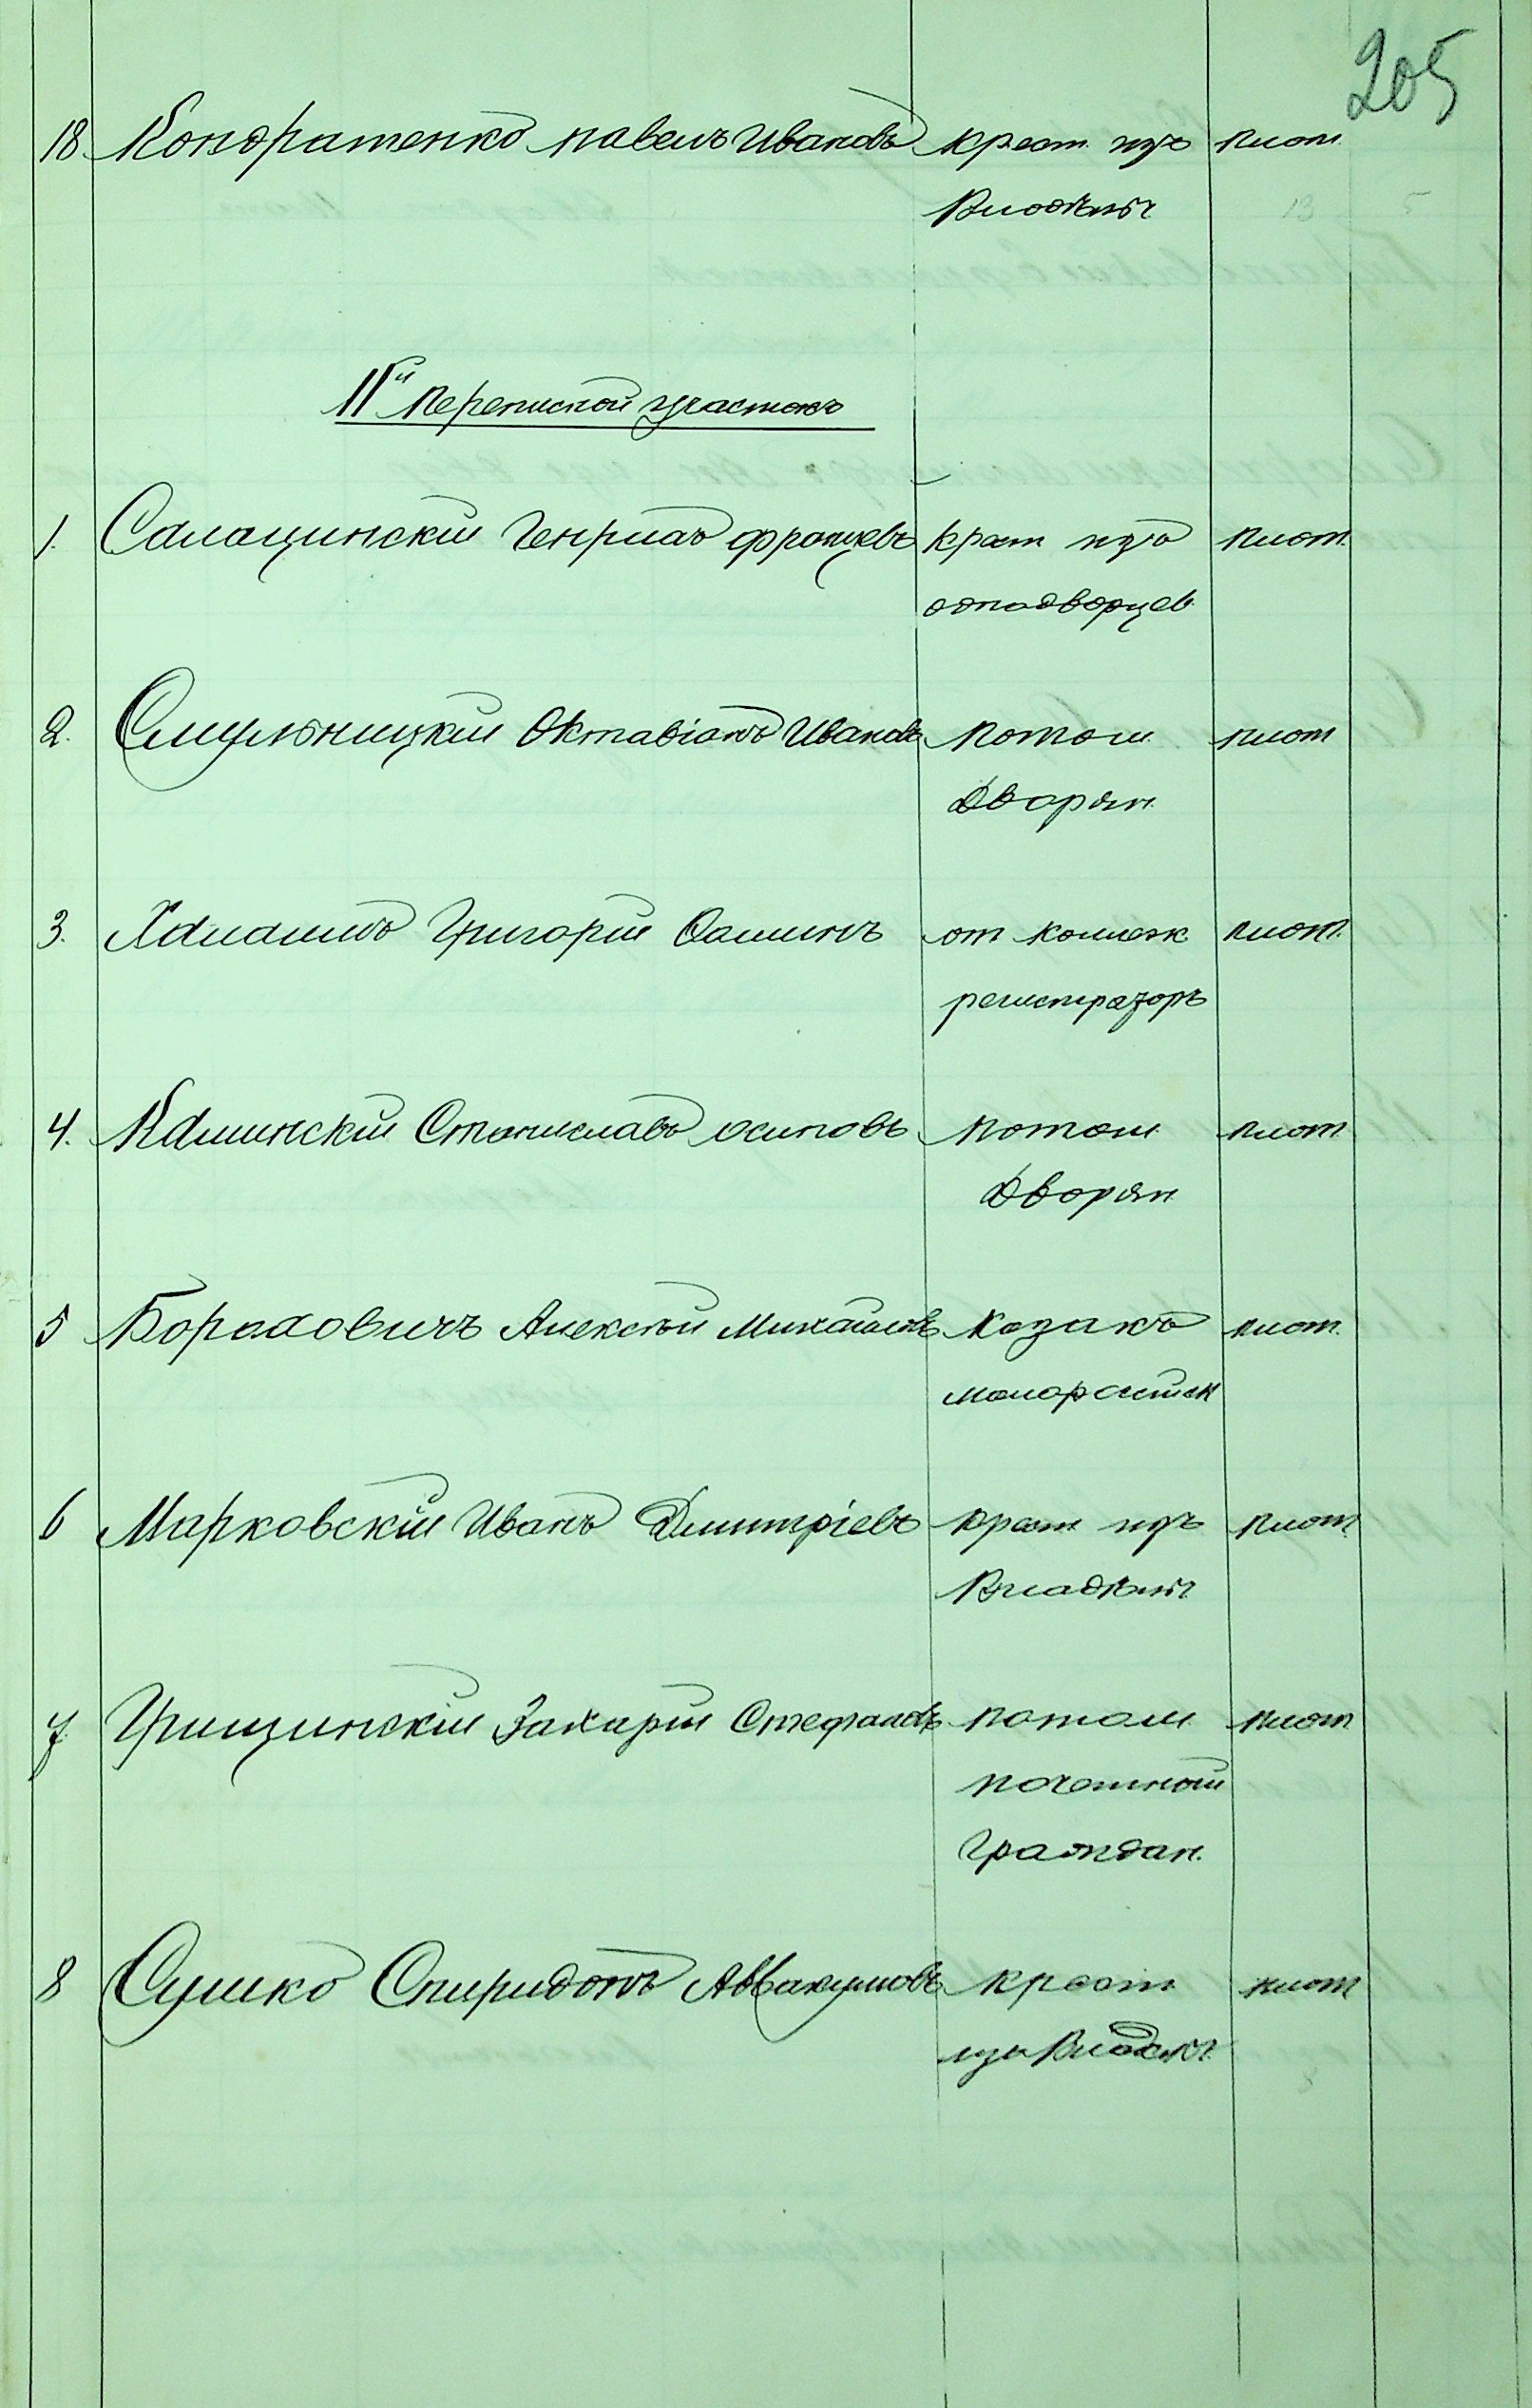 205
18. Кондратенко Павелъ Ивановъ крест. изъ плот.
Владѣльч
11й переписной участокъ
1. Салацинскій Генрихъ Францевъ крест изъ плот.
однодворцев.
2. Смульницкій Октавіанъ Ивановъ потом. плот
Дворян.
3. Григорій от коллеж плот.
регистраторъ
4. Калинскій Станиславъ Осиповъ потом плот.
Дворян
5 Бораховичъ Алексѣй Михайловъ Козакъ плот.
малоросійск
6 Марковскій Иванъ Дмитріевъ крест изъ плот.
Владѣльч
7. Грищинскій Захарій Стефановъ потом. плот
почетный
граждан.
8 Сушко Спиридонъ Аввакумовъ крест плот
изъ Владѣльч.